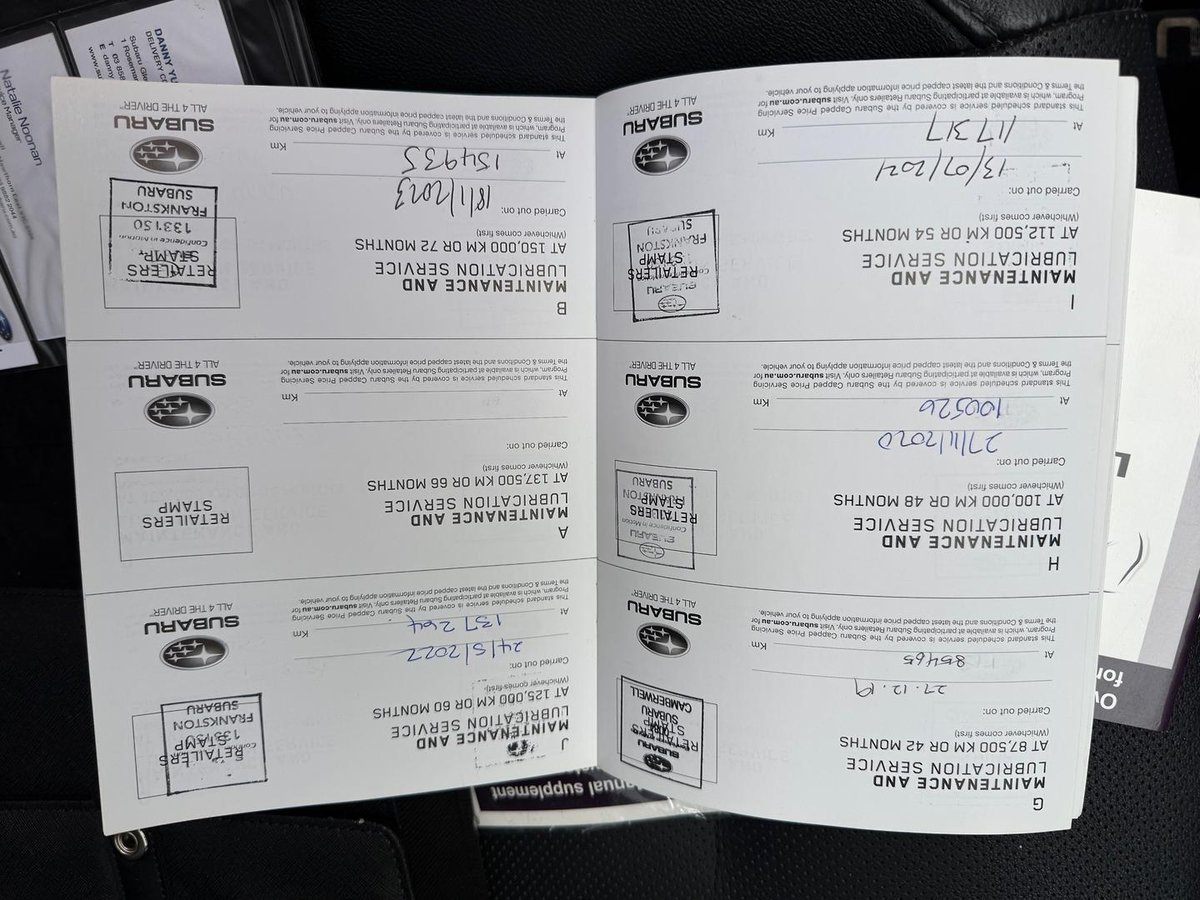 G
MAINTENANCE AND
LUBRICATION SERVICE
AT 87,500 KM OR 42 MONTHS
(Whichever comes first)
Carried out on:
27.12.19
At 85465 Km
This standard scheduled service is covered by the Subaru Capped Price Servicing
Program, which is available at participating Subaru Retailers only. Visit subaru.com.au for
the Terms & Conditions and the latest capped price information applying to your vehicle.
RETAILERS
STAMP
SUBARU
SUBARU
CAMBERWELL
SUBARU
ALL 4 THE DRIVER
H
MAINTENANCE AND
LUBRICATION SERVICE
AT 100,000 KM OR 48 MONTHS
(Whichever comes first)
Carried out on:
27/11/2020
At 100526 Km
This standard scheduled service is covered by the Subaru Capped Price Servicing
Program, which is available at participating Subaru Retailers only. Visit subaru.com.au for
the Terms & Conditions and the latest capped price information applying to your vehicle.
SUBARU
Confidence in Motion
RETAILERS
STAMP
FRANKSTON
SUBARU
SUBARU
ALL 4 THE DRIVER
I
MAINTENANCE AND
LUBRICATION SERVICE
AT 112,500 KM OR 54 MONTHS
(Whichever comes first)
Carried out on:
13/07/2021
At 117317 Km
This standard scheduled service is covered by the Subaru Capped Price Servicing
Program, which is available at participating Subaru Retailers only. Visit subaru.com.au for
the Terms & Conditions and the latest capped price information applying to your vehicle.
SUBARU
RETAILERS
STAMP
FRANKSTON
SUBARU
SUBARU
ALL 4 THE DRIVER
J
MAINTENANCE AND
LUBRICATION SERVICE
AT 125,000 KM OR 60 MONTHS
(Whichever comes first)
Carried out on:
24/5/2022
At 137264 Km
This standard scheduled service is covered by the Subaru Capped Price Servicing
Program, which is available at participating Subaru Retailers only. Visit subaru.com.au for
the Terms & Conditions and the latest capped price information applying to your vehicle.
RETAILERS
STAMP
133150
FRANKSTON
SUBARU
SUBARU
ALL 4 THE DRIVER
A
MAINTENANCE AND
LUBRICATION SERVICE
AT 137,500 KM OR 66 MONTHS
(Whichever comes first)
Carried out on:
At Km
This standard scheduled service is covered by the Subaru Capped Price Servicing
Program, which is available at participating Subaru Retailers only. Visit subaru.com.au for
the Terms & Conditions and the latest capped price information applying to your vehicle.
RETAILERS
STAMP
SUBARU
ALL 4 THE DRIVER
B
MAINTENANCE AND
LUBRICATION SERVICE
AT 150,000 KM OR 72 MONTHS
(Whichever comes first)
Carried out on:
18/1/2023
At 154935 Km
This standard scheduled service is covered by the Subaru Capped Price Servicing
Program, which is available at participating Subaru Retailers only. Visit subaru.com.au for
the Terms & Conditions and the latest capped price information applying to your vehicle.
RETAILERS
STAMP
Confidence in Motion
133150
FRANKSTON
SUBARU
SUBARU
ALL 4 THE DRIVER
anual supplement
for
DANNY YU
DELIVERY CO
Subaru Gle
1 Rosema
T 03 858
E danny
www.su
Natalie Noonan
Manager